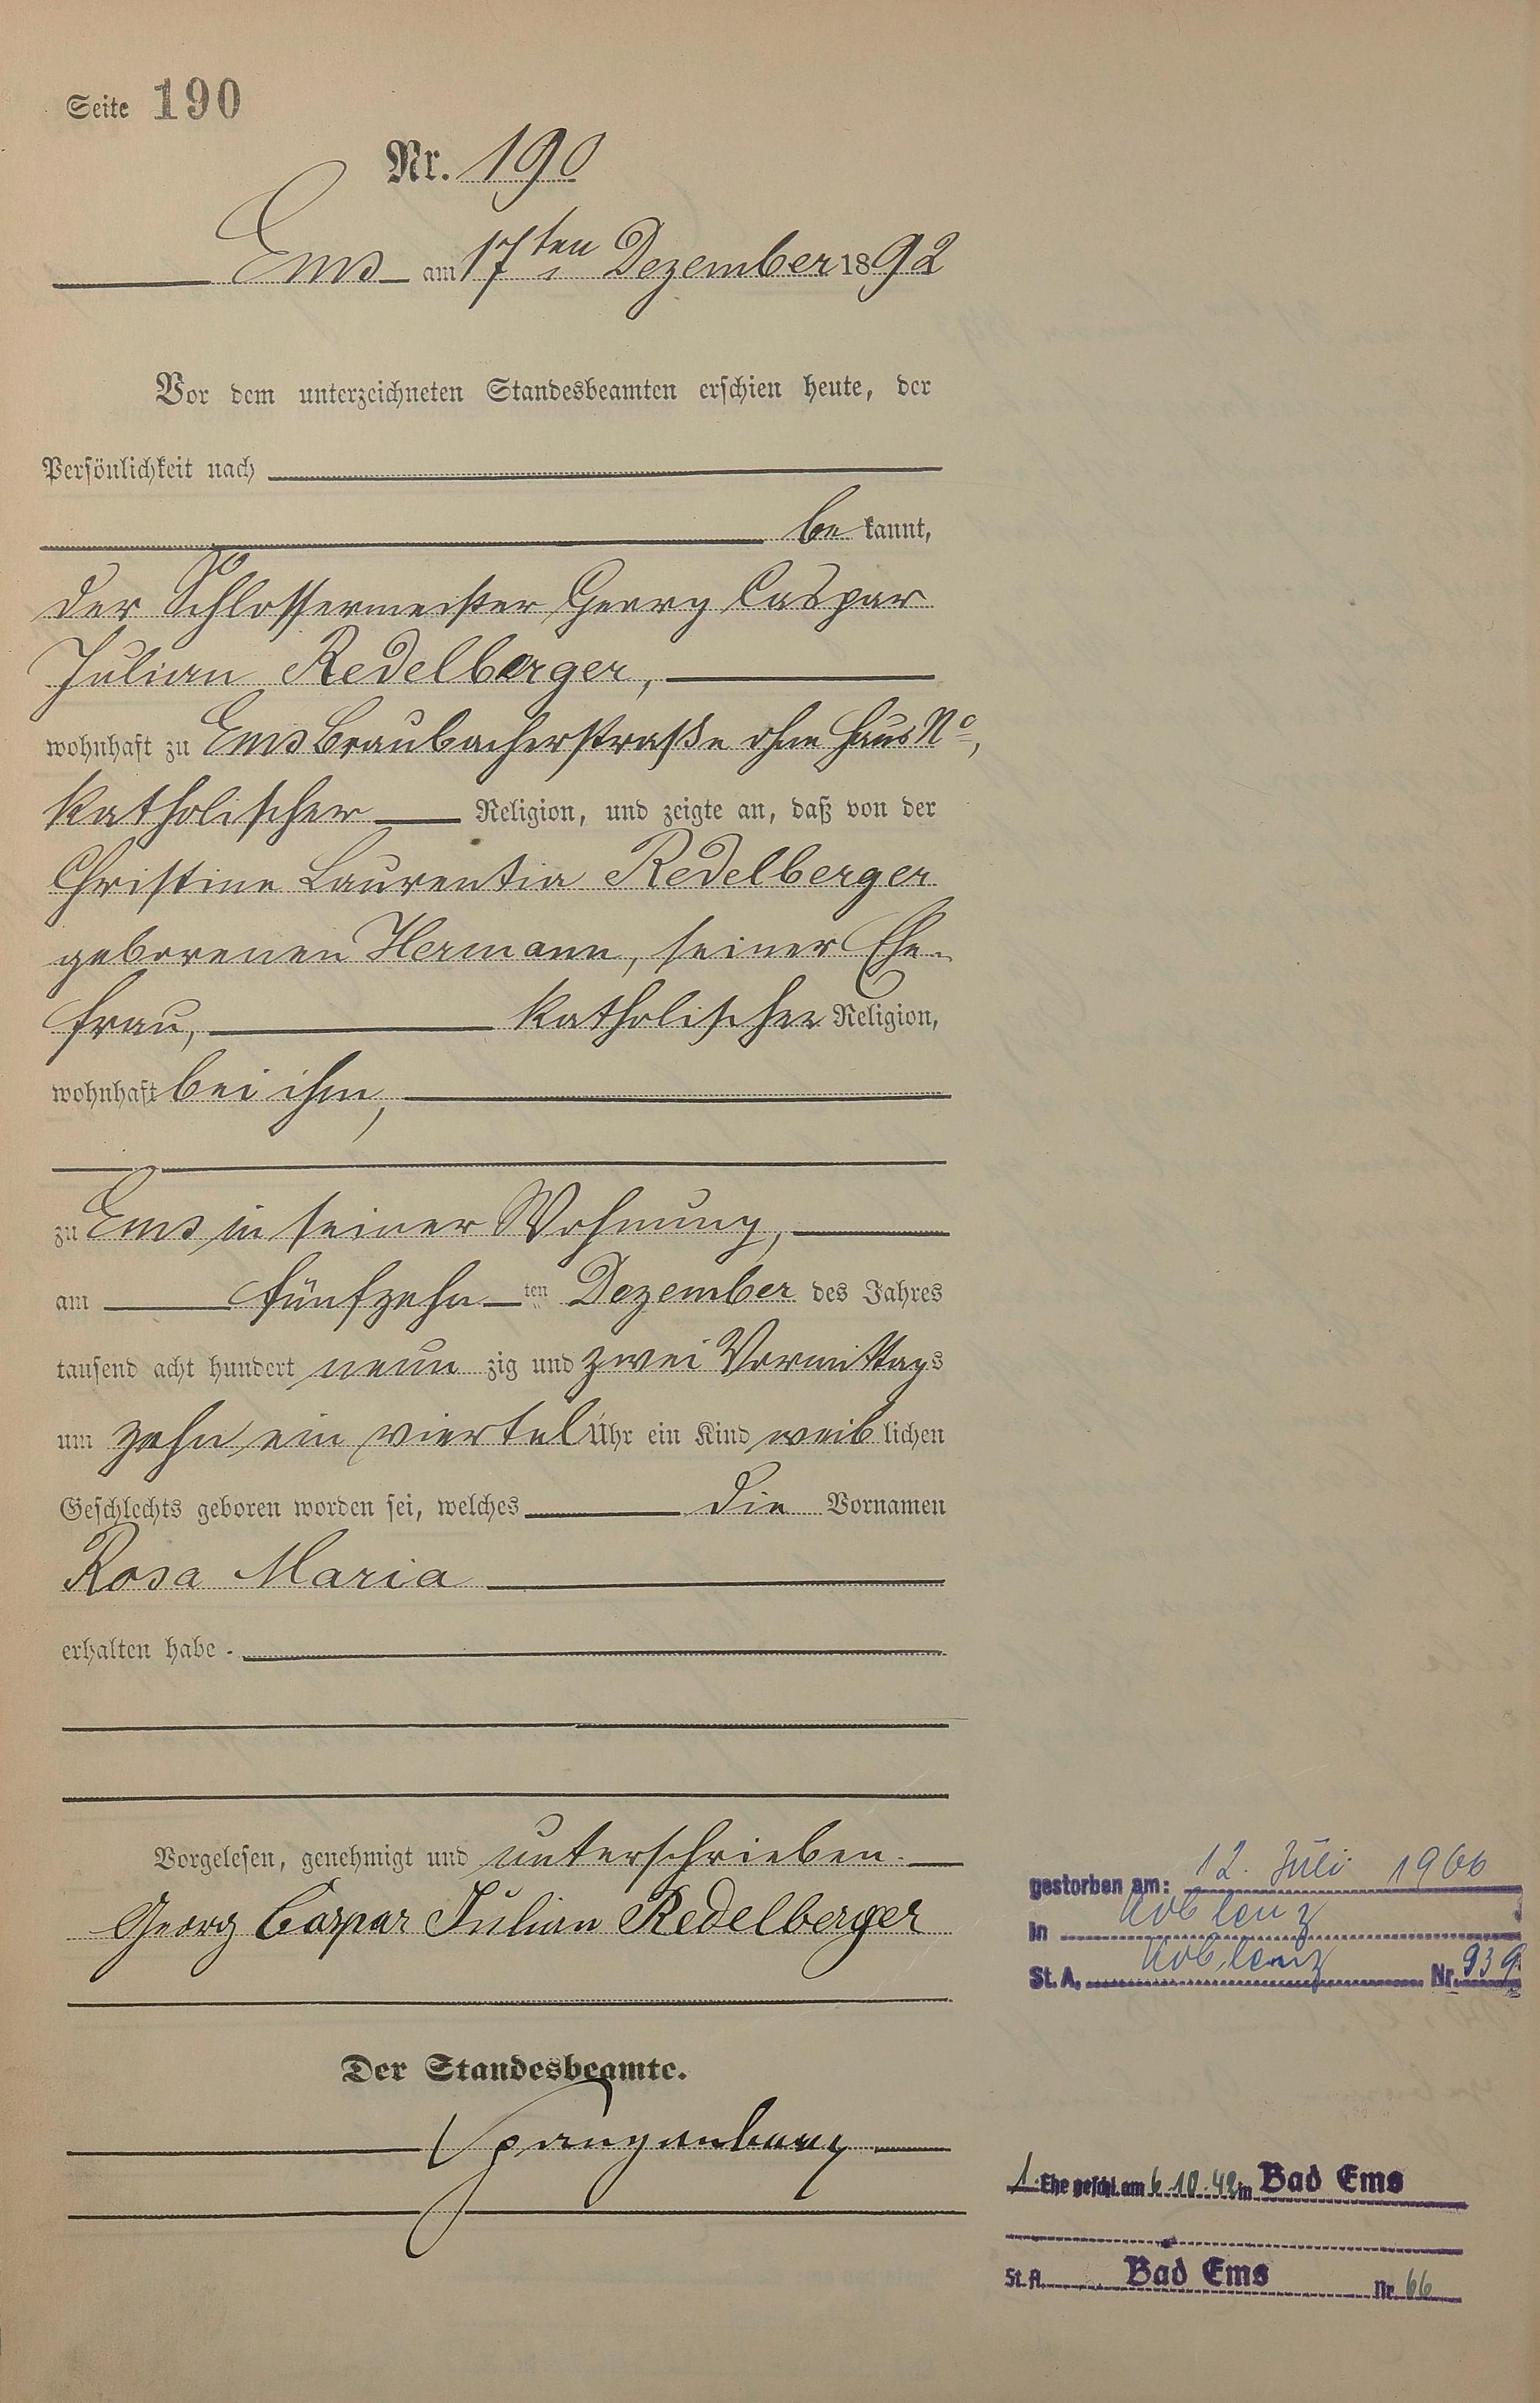 Seite 190
Nr. 190
Ems am 17ten Dezember 1892
Vor dem unterzeichneten Standesbeamten erschien heute, der
Persönlichkeit nach
be kannt,
der Schlossermeister Georg Caspar
Julian Redelberger,
wohnhaft zu Ems Braubacherstraße ohne Haus No,
katholischer Religion, und zeigte an, daß von der
Christine Laurentia Redelberger
geborenen Hermann, seiner Ehe-
frau, katholischer Religion,
wohnhaft bei ihm,
zu Ems in seiner Wohnung,
am fünfzehn ten Dezember des Jahres
tausend acht hundert neun zig und zwei Vormittags
um zehn ein viertel Uhr ein Kind weib lichen
Geschlechts geboren worden sei, welches die Vornamen
Rosa Maria
erhalten habe.
Vorgelesen, genehmigt und unterschrieben.
Georg Caspar Julian Redelberger
Der Standesbeamte.
Spangenberg
gestorben am: 12. Juli 1966
in Koblenz
St. A. Koblenz Nr. 939
1. Ehe geschl. am 6.10.42 in Bad Ems
St. A. Bad Ems Nr. 66